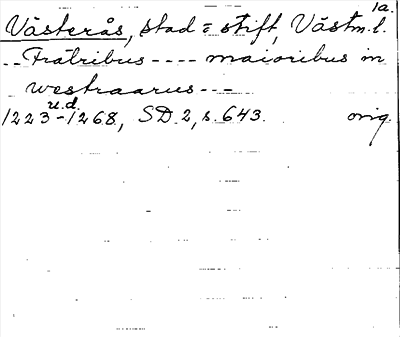 1a.
Västerås, stad = stift, Västm.l.
-- Fratribus ---- maioribus in
westraarus ---
u.d.
1223-1268, SD 2, s. 643. orig.